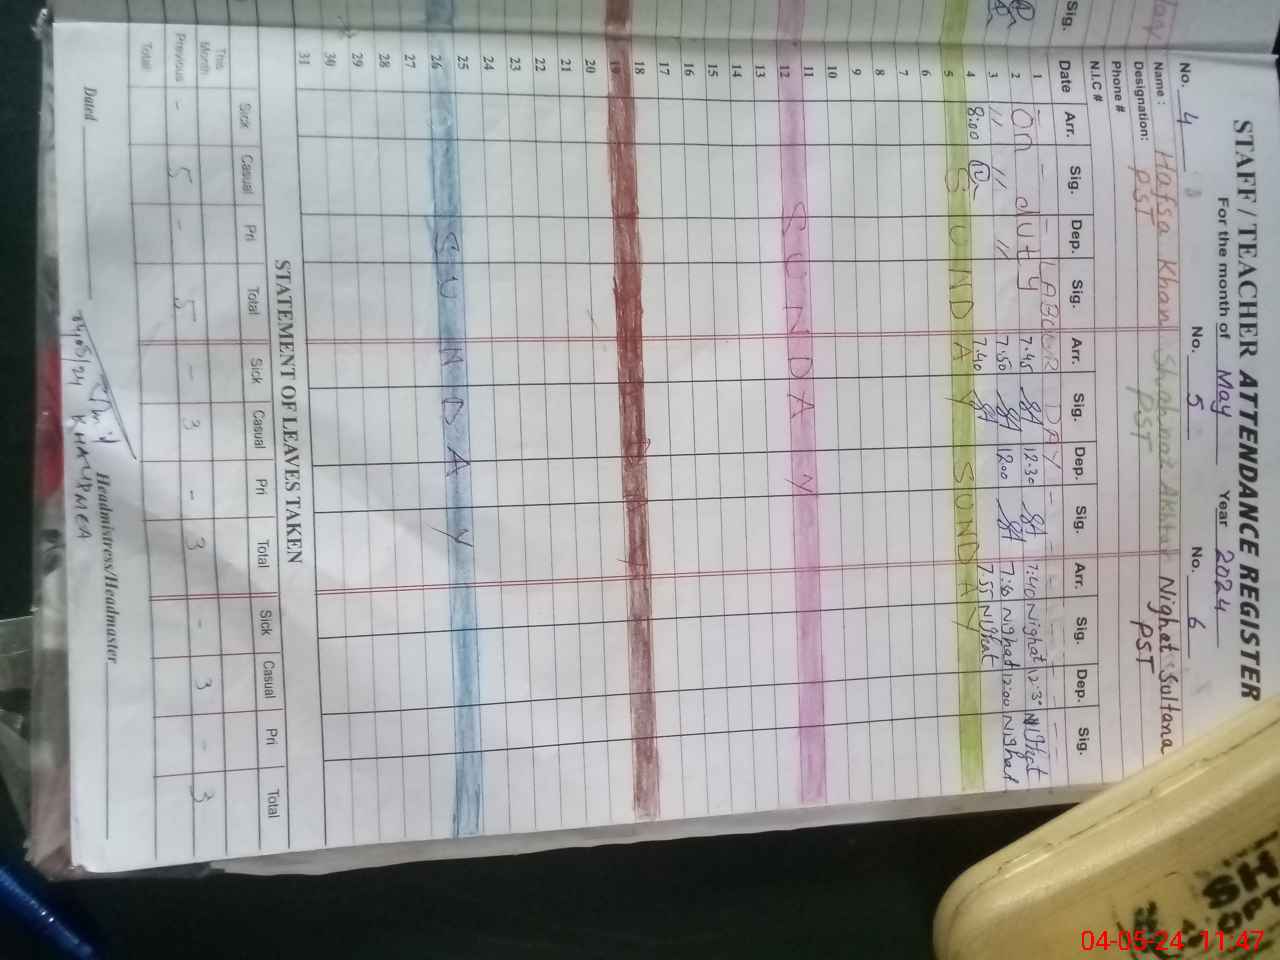 STAFF / TEACHER ATTENDANCE REGISTER
For the month of May Year 2024
No. 4 No. 5 No. 6
Name : Hafsa Khan Shahnaz Akhtar Nighat Sultana
Designation: PST PST PST
Phone #
N.I.C #
Sig. Date Arr. Sig. Dep. Sig. Arr. Sig. Dep. Sig. Arr. Sig. Dep. Sig.
1 - - LABOUR DAY -
2 On duty 7.45 SA 12.30 SA 7:40 Nighat 12:30 Nighat
3 " " " 7.50 SA 1200 SA 7:36 Nighat 12:00 Nighat
4 8:00 7.40 SA 7.55 Nighat
5 SUNDAY SUNDAY
6
7
8
9
10
11
12 SUNDAY
13
14
15
16
17
18
19
20
21
22
23
24
25
26 SUNDAY
27
28
29
30
31
STATEMENT OF LEAVES TAKEN
Sick Casual Pri Total Sick Casual Pri Total Sick Casual Pri Total
This Month
Previous - 5 - 5 - 3 - 3 - 3 - 3
Total
Dated Headmistress/Headmaster
04/05/24
04-05-24 11:47